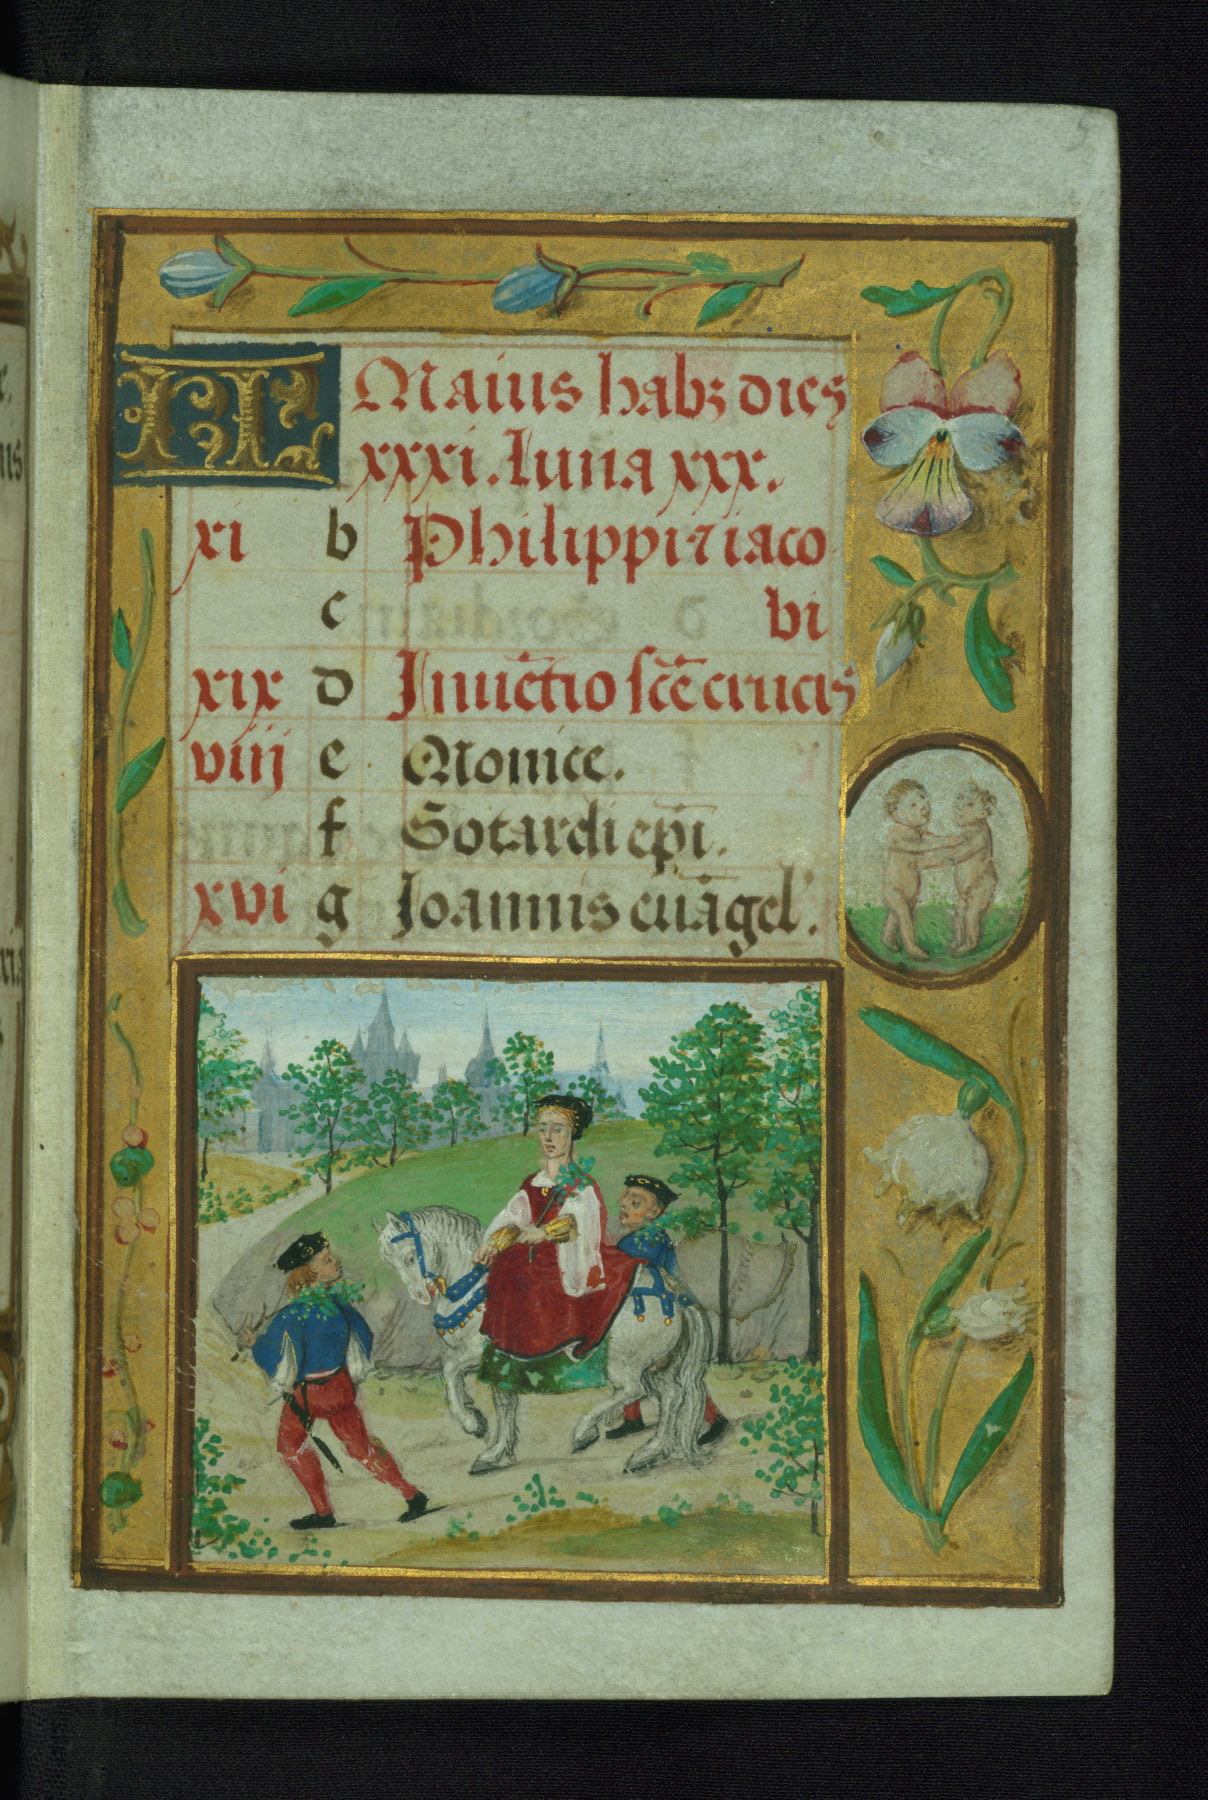 KL Maius habꝫ dies
xxxi. Luna xxx.
xi b Philippi ⁊ iaco
c bi
xix d Inuēctio scē crucis
viij e Monice.
f Gotardi ep̄i.
xvi g Joannis euāgel'.
5